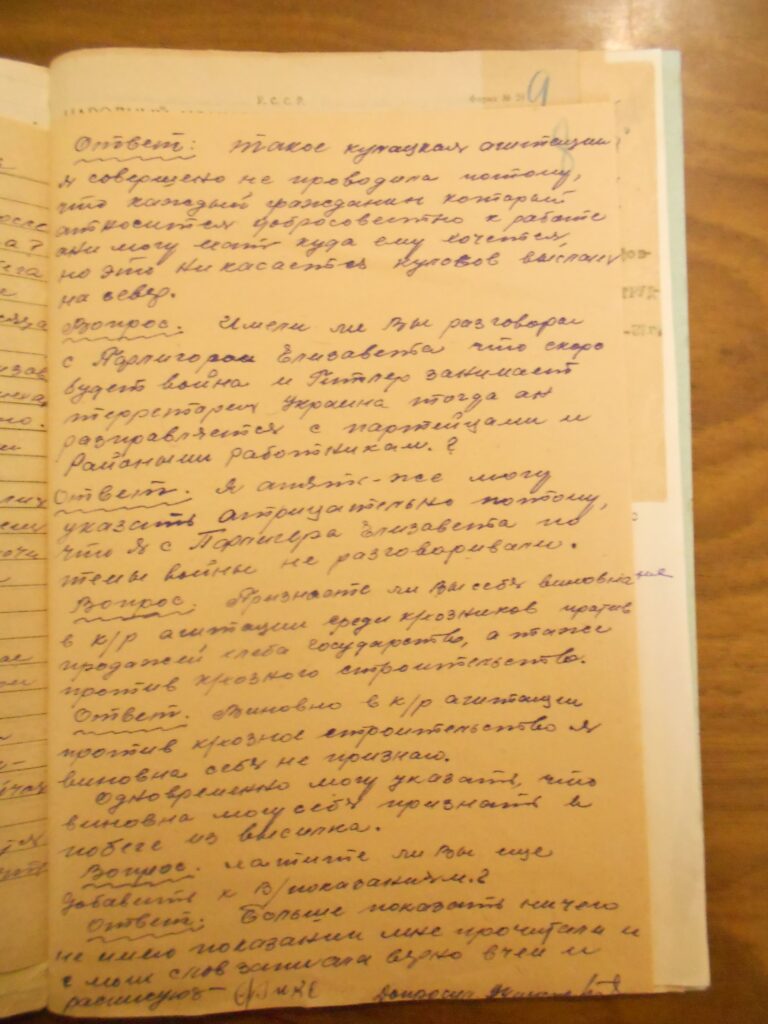 У.С.С.Р.
Форма №
9
8
Ответ: Такое кулацкая агитации
я совершено не проводила потому,
что каждый гражданин которий
относится добросовестно к работе
они могу ехать куда ему хочется,
но это ни касается кулаков
на север.
Вопрос. Имели ли Вы разговоры
с Елизавета что скоро
будет война и Гитлер занимает
терретория Украина тогда он
разправляется с партейцами и
Райоными работникам.?
Ответ. Я опять-же могу
указать отрицательно потому,
что я с Елизавета по
темы войны не разговоривали.
Вопрос. Признаете ли Вы себя
в к/р агитации среди к/хозников против
продажей хлеба государство, а также
против к/хозного строительство.
Ответ. Виновно в к/р агитации
против к/хозное строительство я
виновна себя не признаю.
Одновременно могу указать, что
виновна могу себя признать в
побеге из высилка.
Вопрос. ли Вы еще
добавить к В/показаниям.?
Ответ. Больше показать ничего
не имею показании мне прочитали и
с моих слов записала верно в чем и
росписуюз Допросил